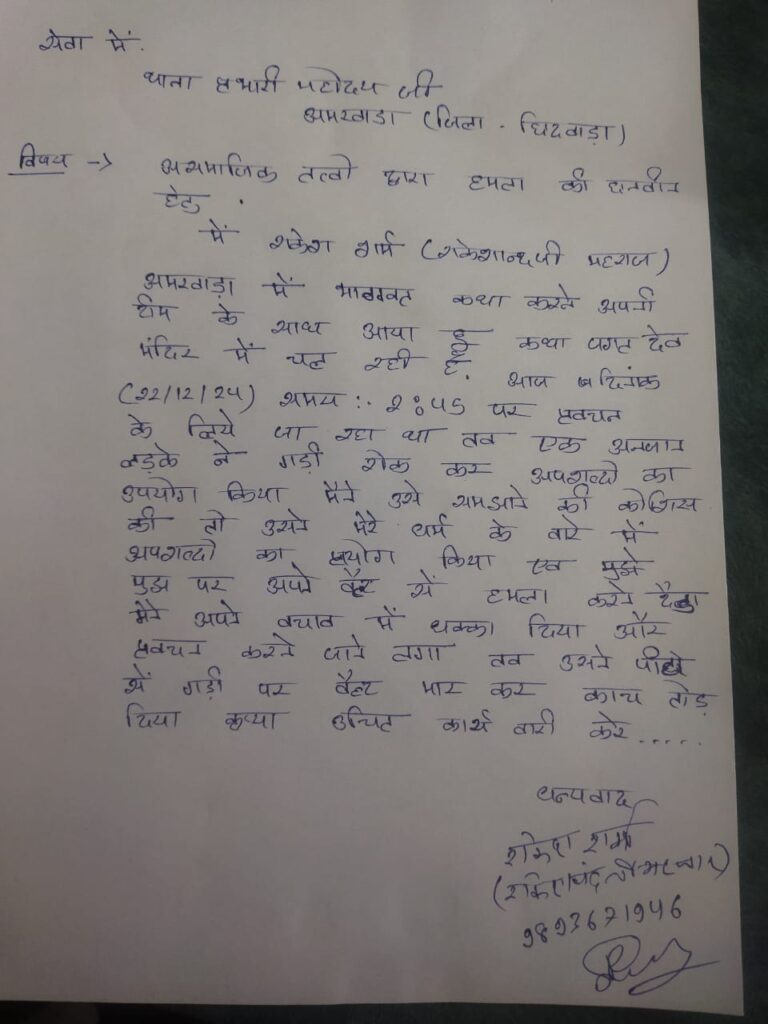 सेवा में.
थाना प्रभारी महोदय जी
अमरवाड़ा (जिला - छिंदवाड़ा)
विषय → असमाजिक तत्वो द्वारा हमला की छानवीन
हेतु .
में राकेश शर्मा (राकेशान्दजी महराज)
अमरवाड़ा में भागवत कथा करने अपनी
टीम के साथ आया हूँ कथा पगत देव
मंदिर में चल रही है. आज दिनांक
(22/12/24) समय :- 2:45 पर प्रवचन
के लिये जा रहा था तव एक अनजान
लड़के ने गाड़ी रोक कर अपशब्दो का
उपयोग किया मैंने उसे समझाने की कोशिस
की तो उसने मेरे धर्म के वारे में
अपशब्दो का प्रयोग किया एव मुझे
मुझ पर अपने वैल्ट सें हमला करने दैड़ा
मेंने अपने वचाव में धक्का दिया और
प्रवचन करने जाने लगा तव उसने पीछे
सें गाड़ी पर वैल्ट मार कर काच तोड़
दिया कृप्या उचित कार्य वारी करे.....
धन्यवाद
राकेश शर्मा
9893671946